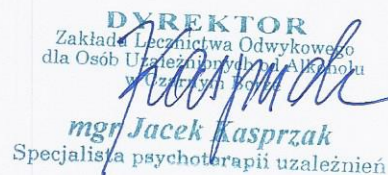 DYREKTOR
Zakładu Lecznictwa Odwykowego
dla Osób Uzależnionych od Alkoholu
w Czarnym Borze
Kasprzak
mgr Jacek Kasprzak
Specjalista psychoterapii uzależnień